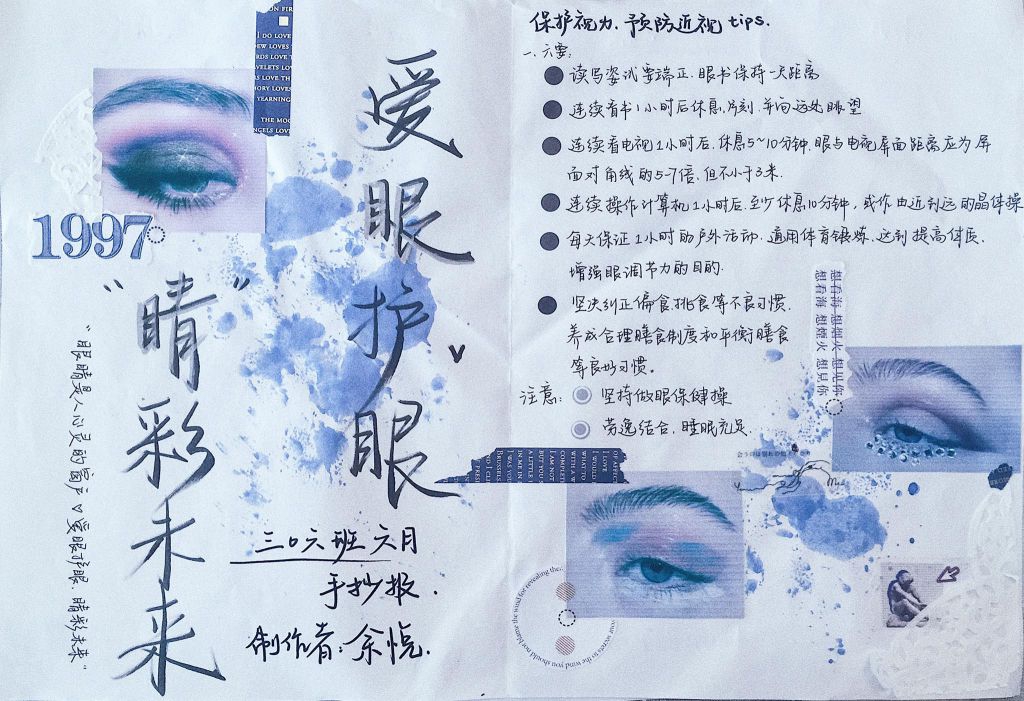 爱眼护眼
"睛"彩未来
1997
"眼睛是人心灵的窗户♡爱眼护眼、睛彩未来"
三〇六班 六月
手抄报.
制作者:余悦.
I DO LOVE
THE MOO
YEARNING
保护视力、预防近视 tips.
一、六要:
读写姿试要端正、眼书保持一尺距离
连续看书1小时后休息,片刻,并向远处眺望
连续看电视1小时后、休息5~10分钟、眼与电视屏面距离应为屏
面对角线的5-7倍,但不小于3米.
连续操作计算机1小时后、至少休息10分钟,或作由近到远的晶体操
每天保证1小时的户外活动、适用体育锻炼、达到提高体质、
增强眼调节力的目的.
坚决纠正偏食、挑食等不良习惯、
养成合理膳食制度和平衡膳食
等良好习惯。
注意:
坚持做眼保健操
劳逸结合、睡眠充足.
想看海 想煙火 想見你
想看海 想煙火 想見你
I LOVE
I WOULD
WITH A W
WHAT TO
COMPLETE
I AM NOT
BUT YOU
A LITTLE
IN ME IN
I WAS YOU
BRUSSELS
your secrets to the wind you should not blame the wind for revealing the